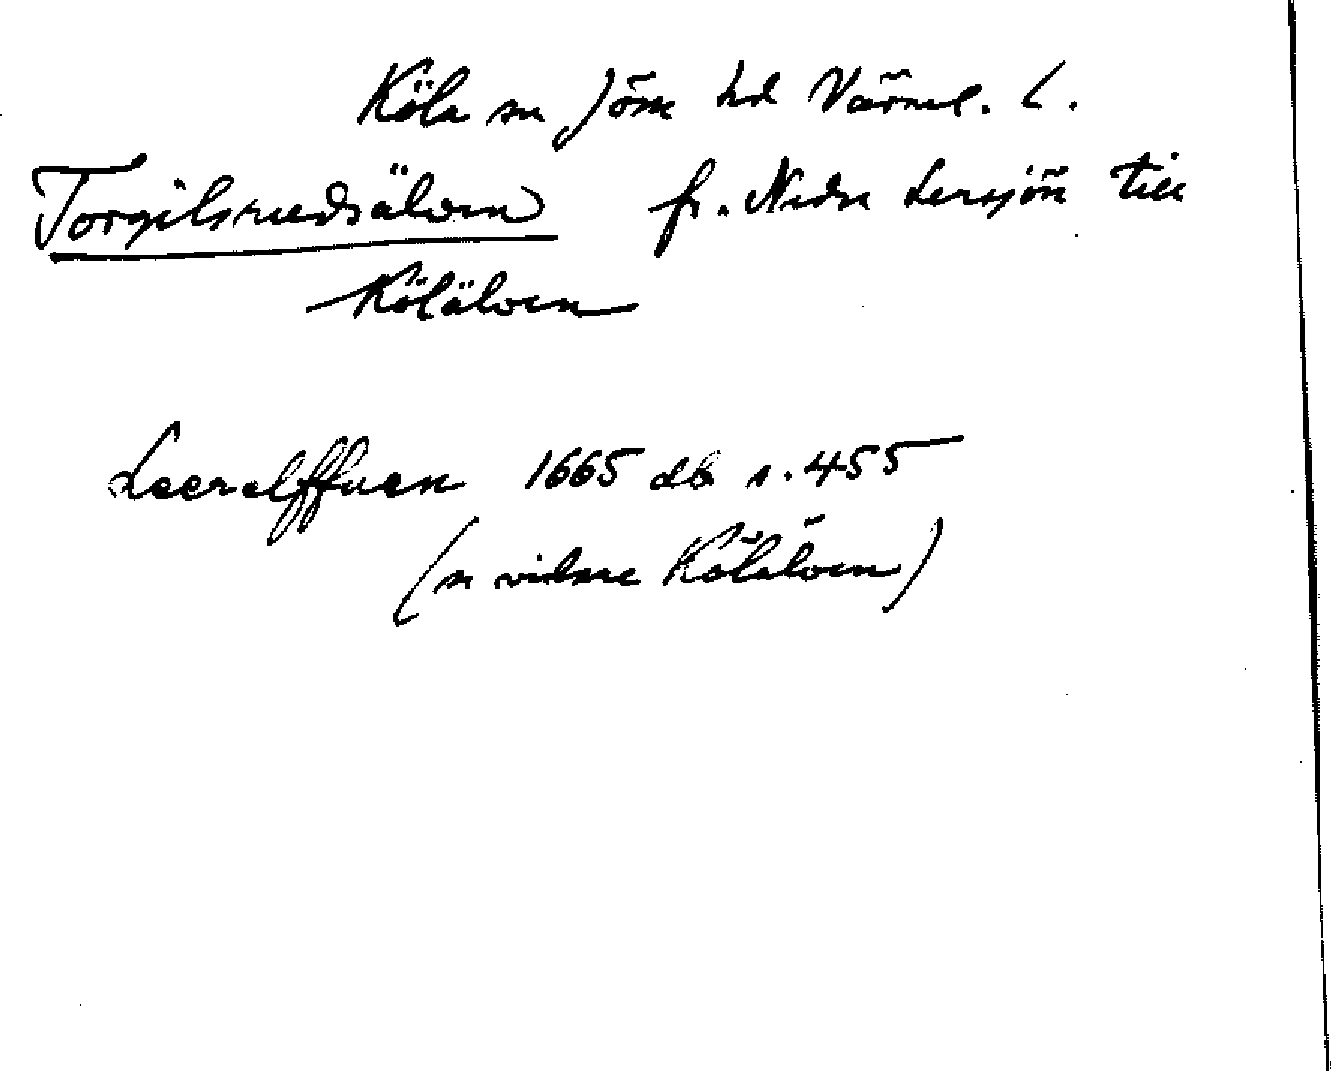 Köla sn Jöss hd Värml. l.
Torgilsrudsälven fr. Nedre Lersjön till
Kölälven
Leerelffuen 1665 db s. 455
(se vidare Kölälven)